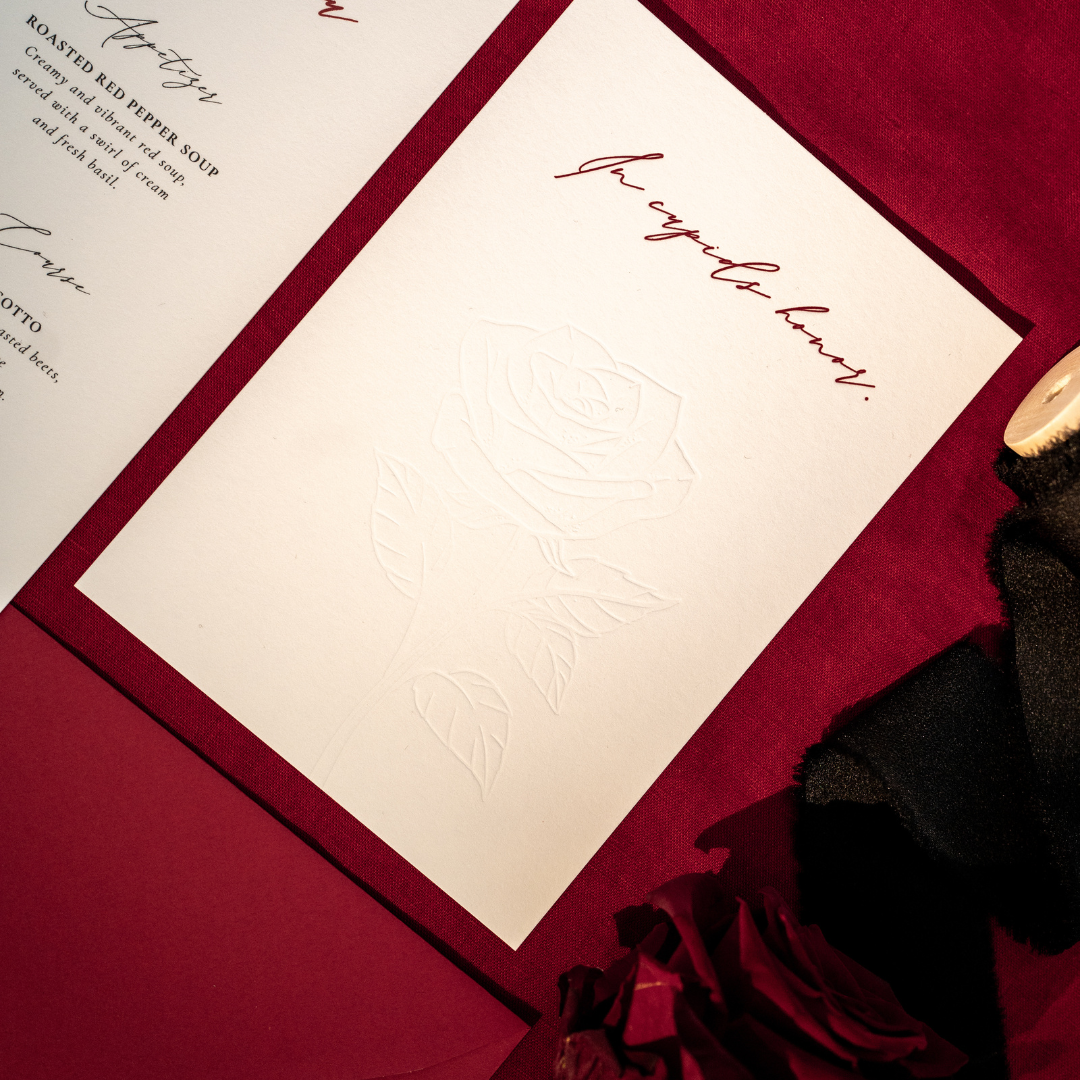 Appetizer
ROASTED RED PEPPER SOUP
Creamy and vibrant red soup,
served with a swirl of cream
and fresh basil.
Course
beets,
In cupids honor.